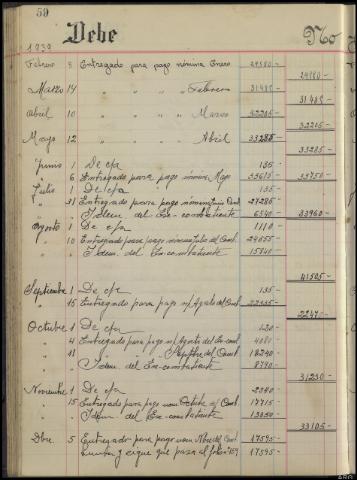 59
Debe No
1939
Febrero 8 Entregado para pago nómina Enero 24980 -
24980 -
Marzo 14 " " " " Febrero 31485 -
31485 -
Abril 10 " " " " Marzo 32205 -
32205 -
Mayo 12 " " " " Abril 33285 -
33285 -
Junio 1 De cfa 135 -
" 6 Entregado para pago nómina Mayo 33615 - 33750 -
Julio 1 De cfa 135 -
" 31 Entregado para pago nomina Junio Comb. 27285 -
" " Idem del Ex-combatiente 6540 - 33960 -
Agosto 1 De cfa 1110 -
" 10 Entregado para pago nomina Julio del Comb.
" " Idem. del Ex-combatiente
41505 -
Septiembre 1 De cfa 135 -
" 15 Entregado para pago n/ Agosto del Comb.
Octubre 1 De cfa
" 4 Entregado para pago n/ Agosto del Ex-comb. 4080 -
" 11 " " " Septbre del Comb. 18240 -
" " Idem del Ex-combatiente 8790 -
31230 -
Noviembre 1 De cfa
" 15 Entregado para pago nom Octubre n/ Comb. 17715 -
" " Idem del Ex-combatiente
33105 -
Dbre 5 Entregado para pago nom Nbre del Comb. 17595 -
Suma y sigue que pasa al folio 159 17595 -